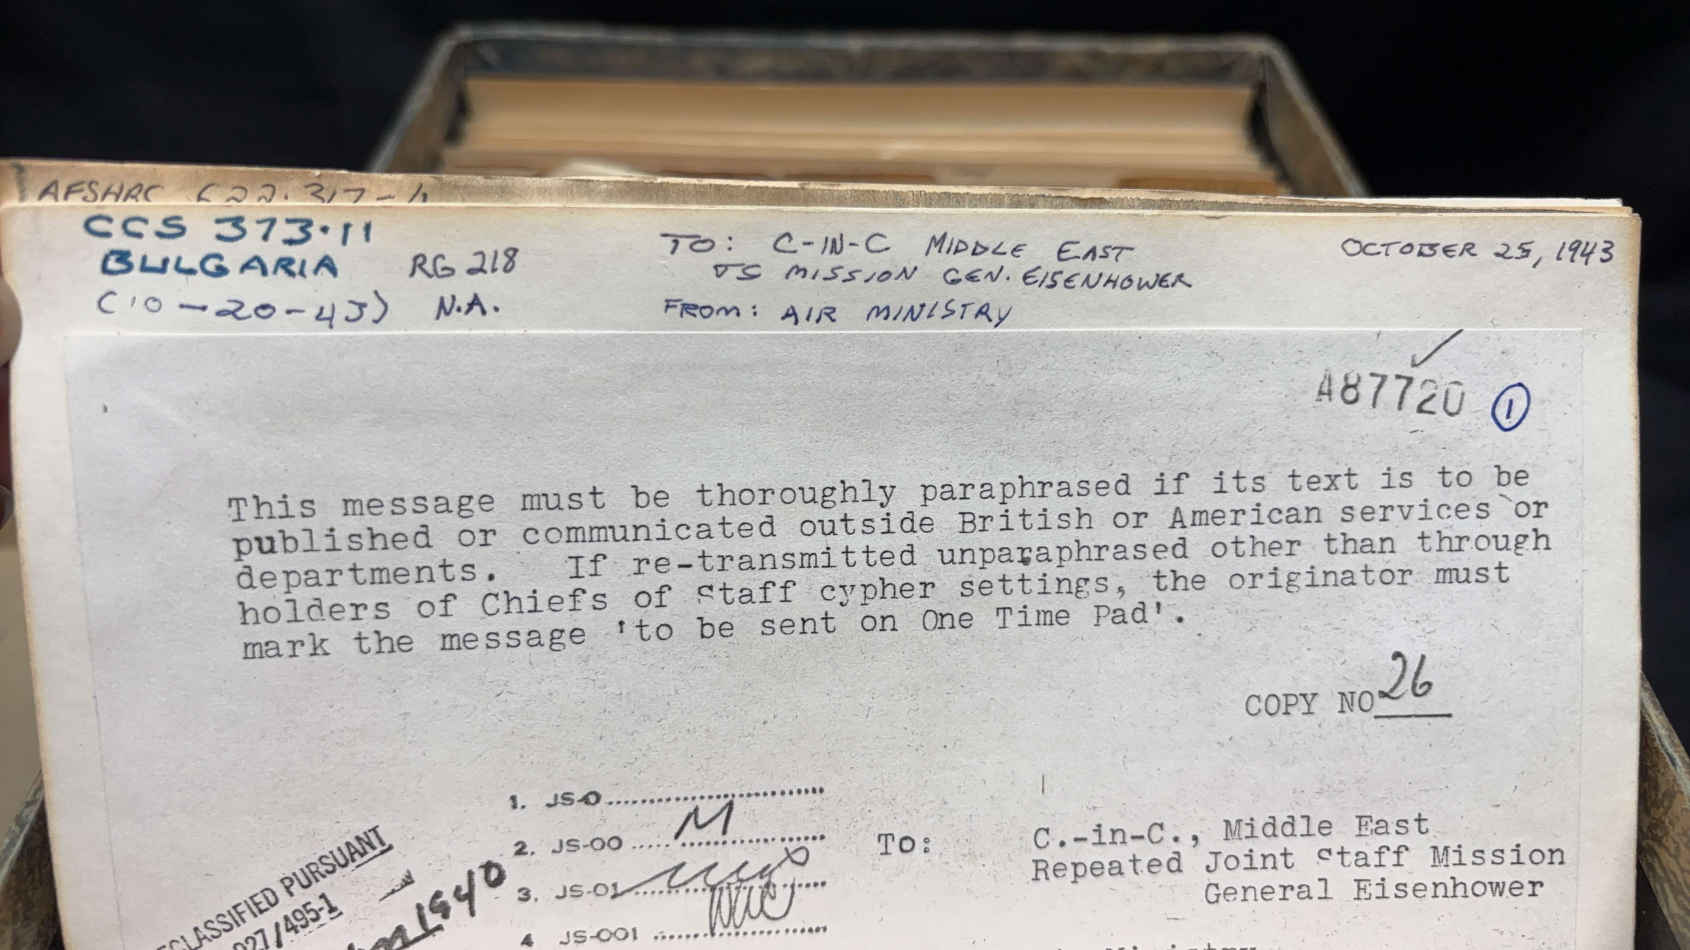 AFSHRC 622.317-
CCS 373.11
BULGARIA RG 218
(10-20-43) N.A.
TO: C-IN-C MIDDLE EAST
JS MISSION GEN. EISENHOWER
FROM: AIR MINISTRY
OCTOBER 25, 1943
A87720 1
This message must be thoroughly paraphrased if its text is to be
published or communicated outside British or American services or
departments. If re-transmitted unparaphrased other than through
holders of Chiefs of Staff cypher settings, the originator must
mark the message 'to be sent on One Time Pad'.
COPY NO 26
1. JS-0
2. JS-00 M
3. JS-01
4 JS-001
To: C.-in-C., Middle East
Repeated Joint Staff Mission
General Eisenhower
CLASSIFIED PURSUANT
027/495-1